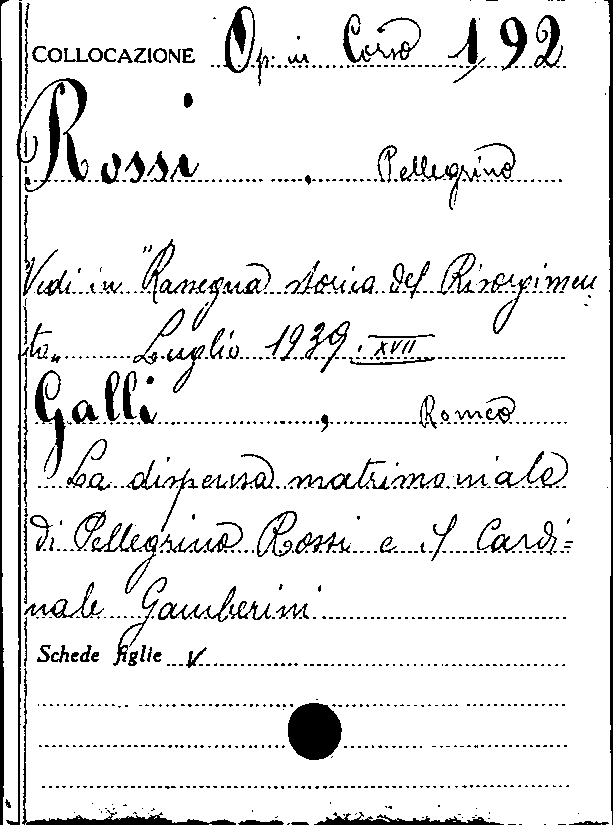 COLLOCAZIONE Op. in Corso 192
Rossi, Pellegrino
Vedi in "Rassegna storica del Risorgimen
to„ Luglio 1939. XVII
Galli, Romeo
La dispensa matrimoniale
di Pellegrino Rossi e il Cardi=
nale Gamberini
Schede figlie V